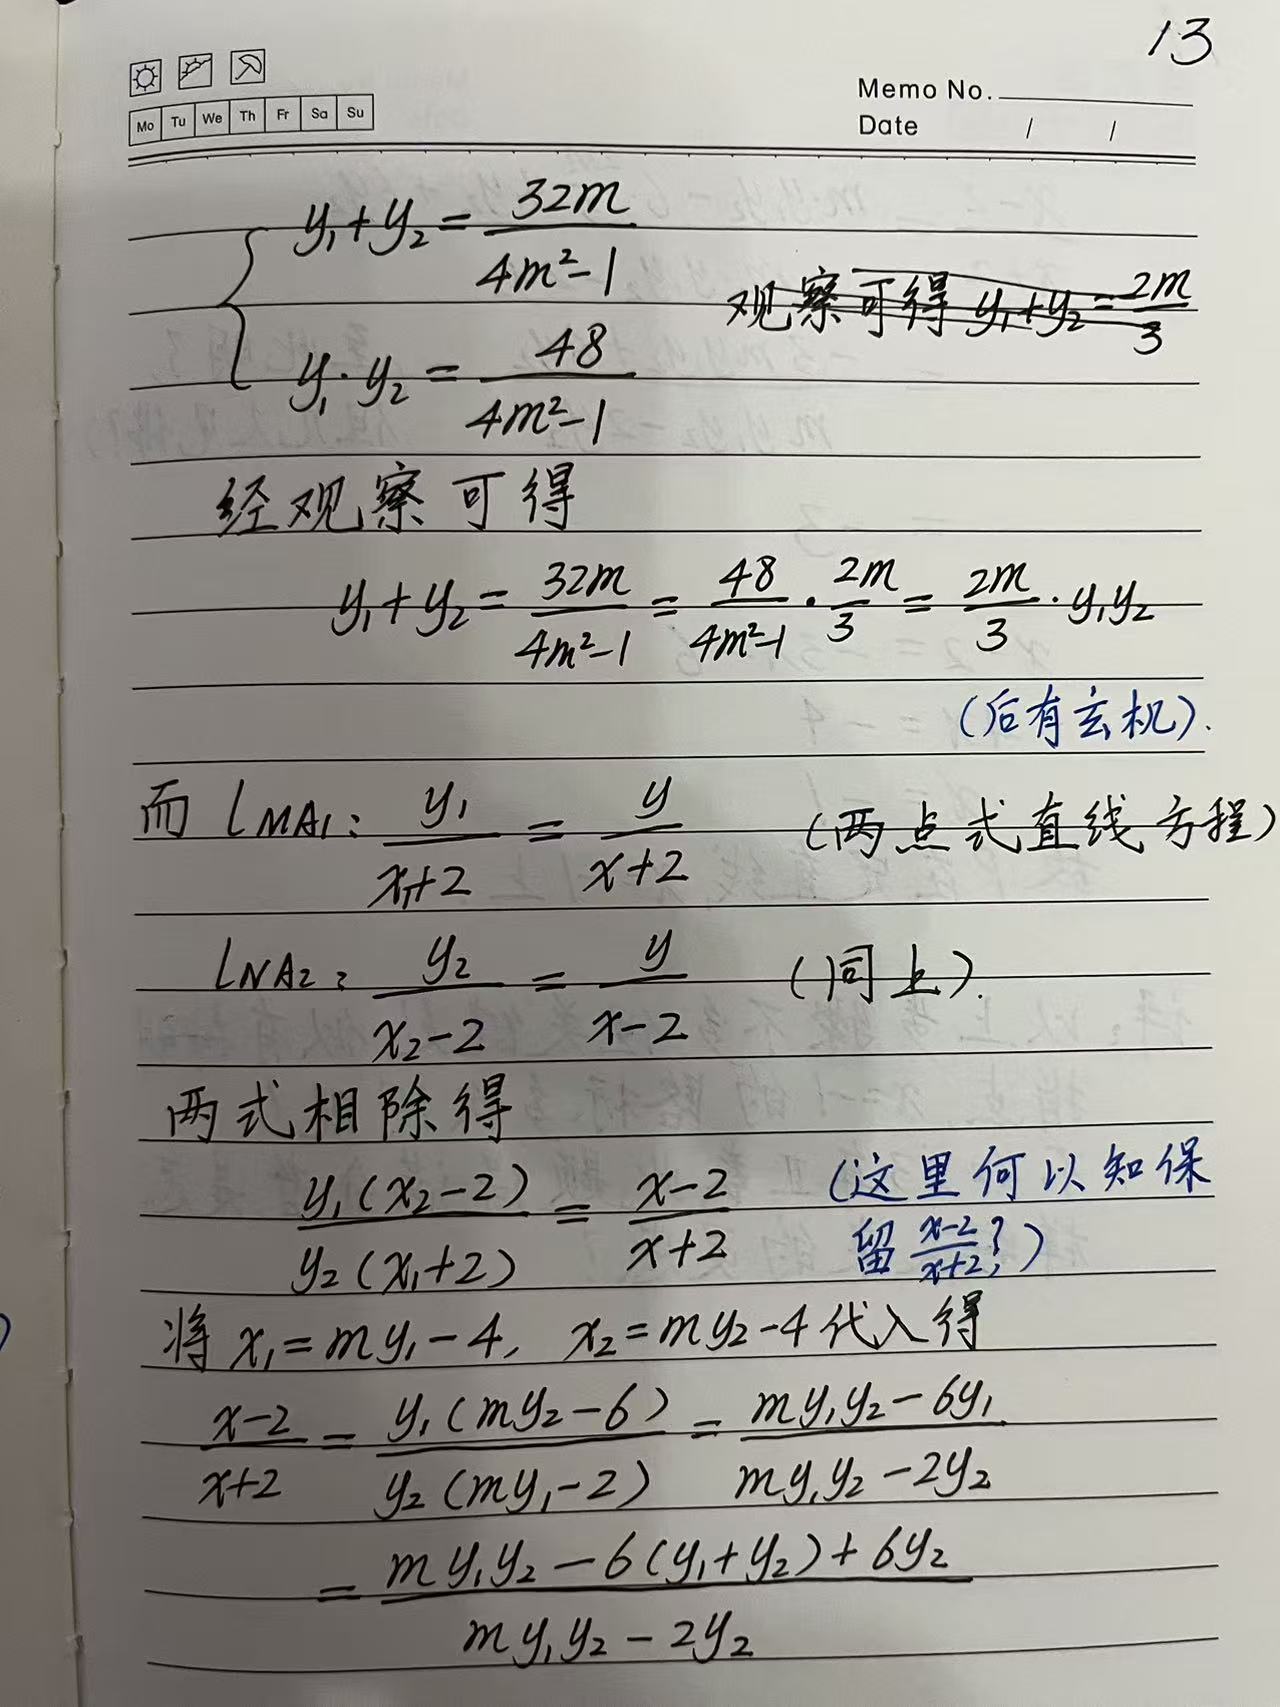 13
Memo No.
Mo Tu We Th Fr Sa Su
Date / /
y₁+y₂=32m/(4m²-1)
观察可得 y₁+y₂=2m/3
y₁·y₂=48/(4m²-1)
经观察可得
y₁+y₂=32m/(4m²-1)=48/(4m²-1)·2m/3=2m/3·y₁y₂
(后有玄机).
而 lMA₁: y₁/(x₁+2)=y/(x+2) (两点式直线方程)
lNA₂: y₂/(x₂-2)=y/(x-2) (同上).
两式相除得
y₁(x₂-2)/y₂(x₁+2)=(x-2)/(x+2) (这里何以知保
留(x-2)/(x+2)?)
将 x₁=my₁-4, x₂=my₂-4代入得
(x-2)/(x+2)=y₁(my₂-6)/y₂(my₁-2)=(my₁y₂-6y₁)/(my₁y₂-2y₂)
=(my₁y₂-6(y₁+y₂)+6y₂)/(my₁y₂-2y₂)